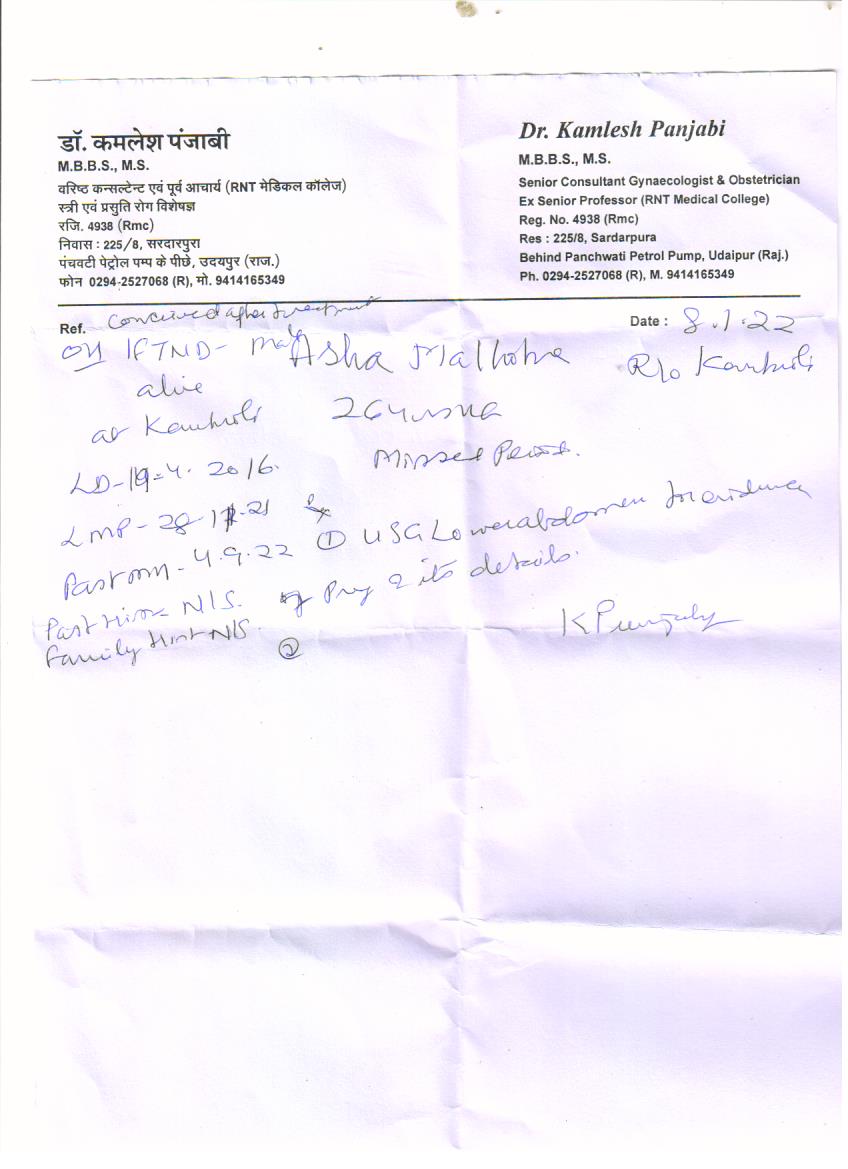 डॉ. कमलेश पंजाबी
M.B.B.S., M.S.
वरिष्ठ कन्सल्टेन्ट एवं पूर्व आचार्य (RNT मेडिकल कॉलेज)
स्त्री एवं प्रसुति रोग विशेषज्ञ
रजि. 4938 (Rmc)
निवास : 225/8, सरदारपुरा
पंचवटी पेट्रोल पम्प के पीछे, उदयपुर (राज.)
फोन 0294-2527068 (R), मो. 9414165349
Dr. Kamlesh Panjabi
M.B.B.S., M.S.
Senior Consultant Gynaecologist & Obstetrician
Ex Senior Professor (RNT Medical College)
Reg. No. 4938 (Rmc)
Res : 225/8, Sardarpura
Behind Panchwati Petrol Pump, Udaipur (Raj.)
Ph. 0294-2527068 (R), M. 9414165349
Ref. Conceived after treatment
Date : 8.1.22
OH 1FTND- Asha Malhotra R/o
alive
at
26 yrs
LD-19-4-2016.
Missed Period.
LMP-28-11-21
- 4.9.22 ① USG Lower abdomen for evidence
Past N/S. of Preg its details.
Family Hist N/S
②